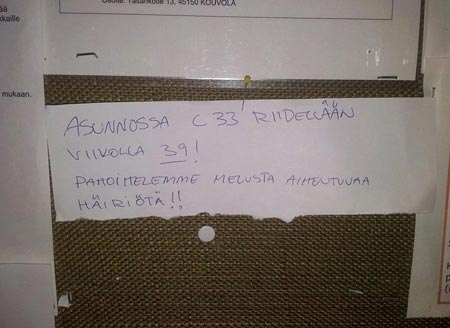 Osoite: Tasankotie 13, 45150 KOUVOLA
mukaan.
ASUNNOSSA C 33 RIIDELLÄÄN
VIIKOLLA 39!
PAHOITTELEMME MELUSTA AIHEUTUVAA
HÄIRIÖTÄ!!